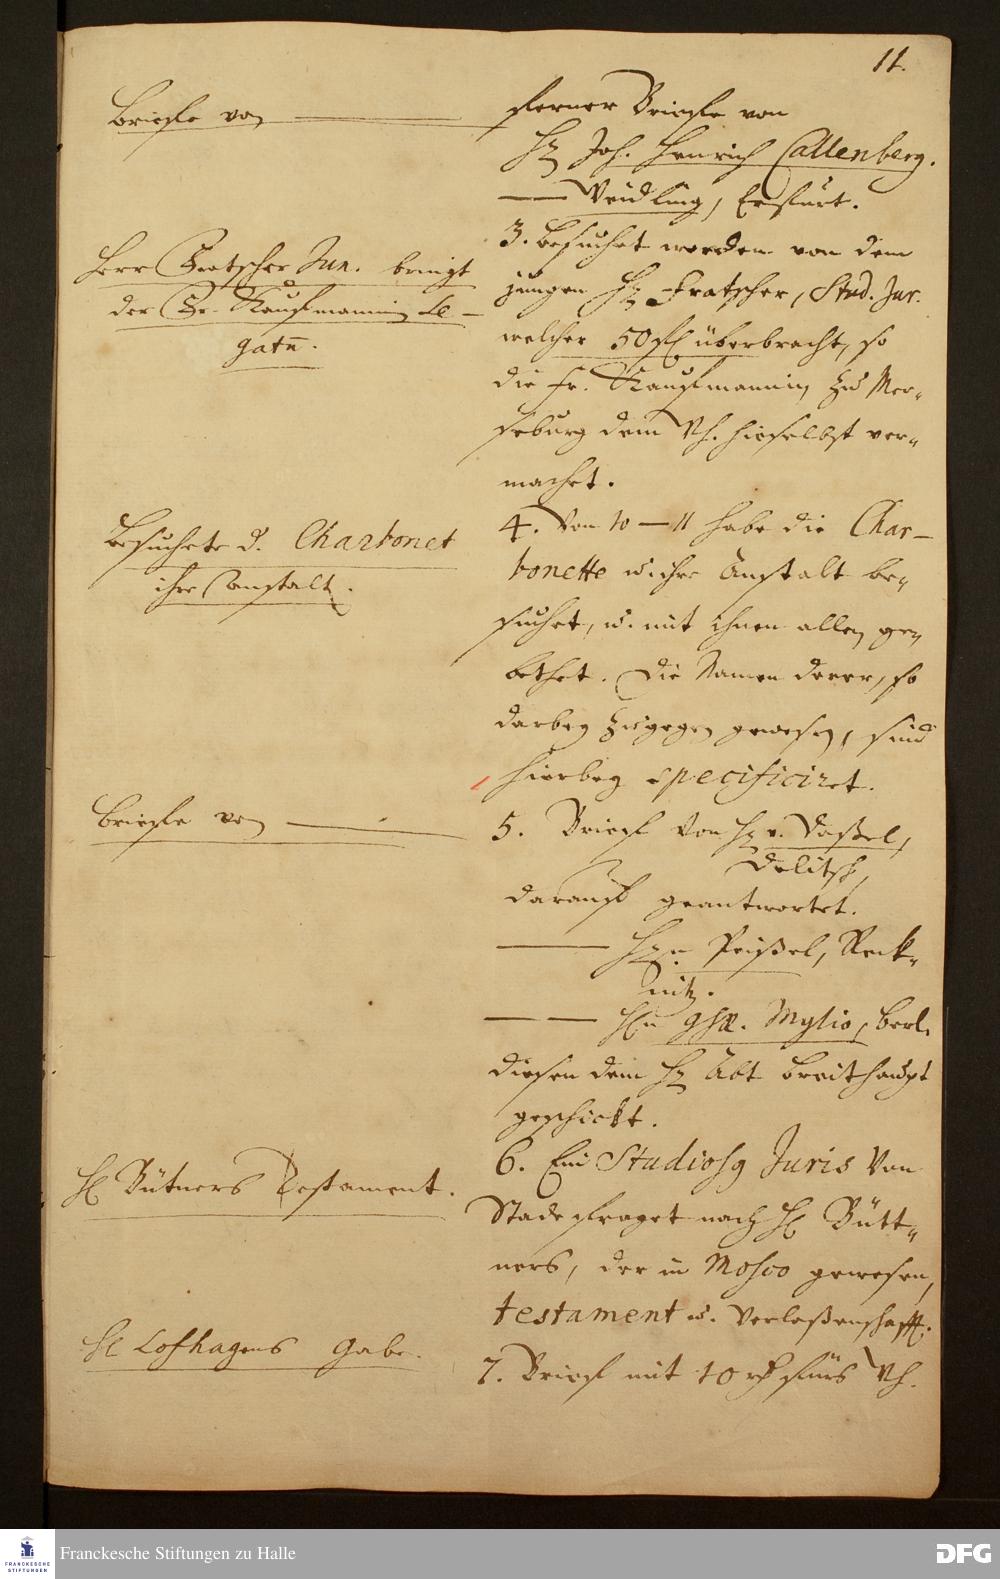 11.
Briefe von
ferner Briefe von
H. Joh. Henrich Callenberg.
— Weidling, Erffurt.
Herr Fratscher Jun. bringt
der Fr. Kauffmannin Le-
gatū.
3. besuchet worden von dem
jungen H. Fratscher, Stud. Jur.
welcher 50 fl überbracht, so
die Fr. Kauffmannin zu Mer-
seburg dem Wh. hieselbst ver-
machet.
Besuchete d. Charbonet
ihre Anstalt.
4. Von 10 — 11 habe die Char-
bonette u. ihre Anstalt be-
suchet, u. mit ihnen allen ge-
bethet. Die Namen derer, so
darbey zugegen gewesen, sind
hierbey specificiret.
Briefe von
5. Brieff von H. v. Daßel,
Delitsch,
darauff geantwortet.
— Hn Peißel, Reck-
nitz.
— — Hn Mylio, Berl.
diesen dem H. Abt Breithaupt
geschickt.
H Bütners Testament.
6. Ein Studiosq Juris von
Stade fraget nach H Bütt-
ners, der in Mosco gewesen,
testament u. Verlaßenschafft.
H Lofhagens Gabe.
7. Brieff mit 10 rh fürs Wh.
Franckesche Stiftungen zu Halle
FRANCKESCHE
STIFTUNGEN
DFG